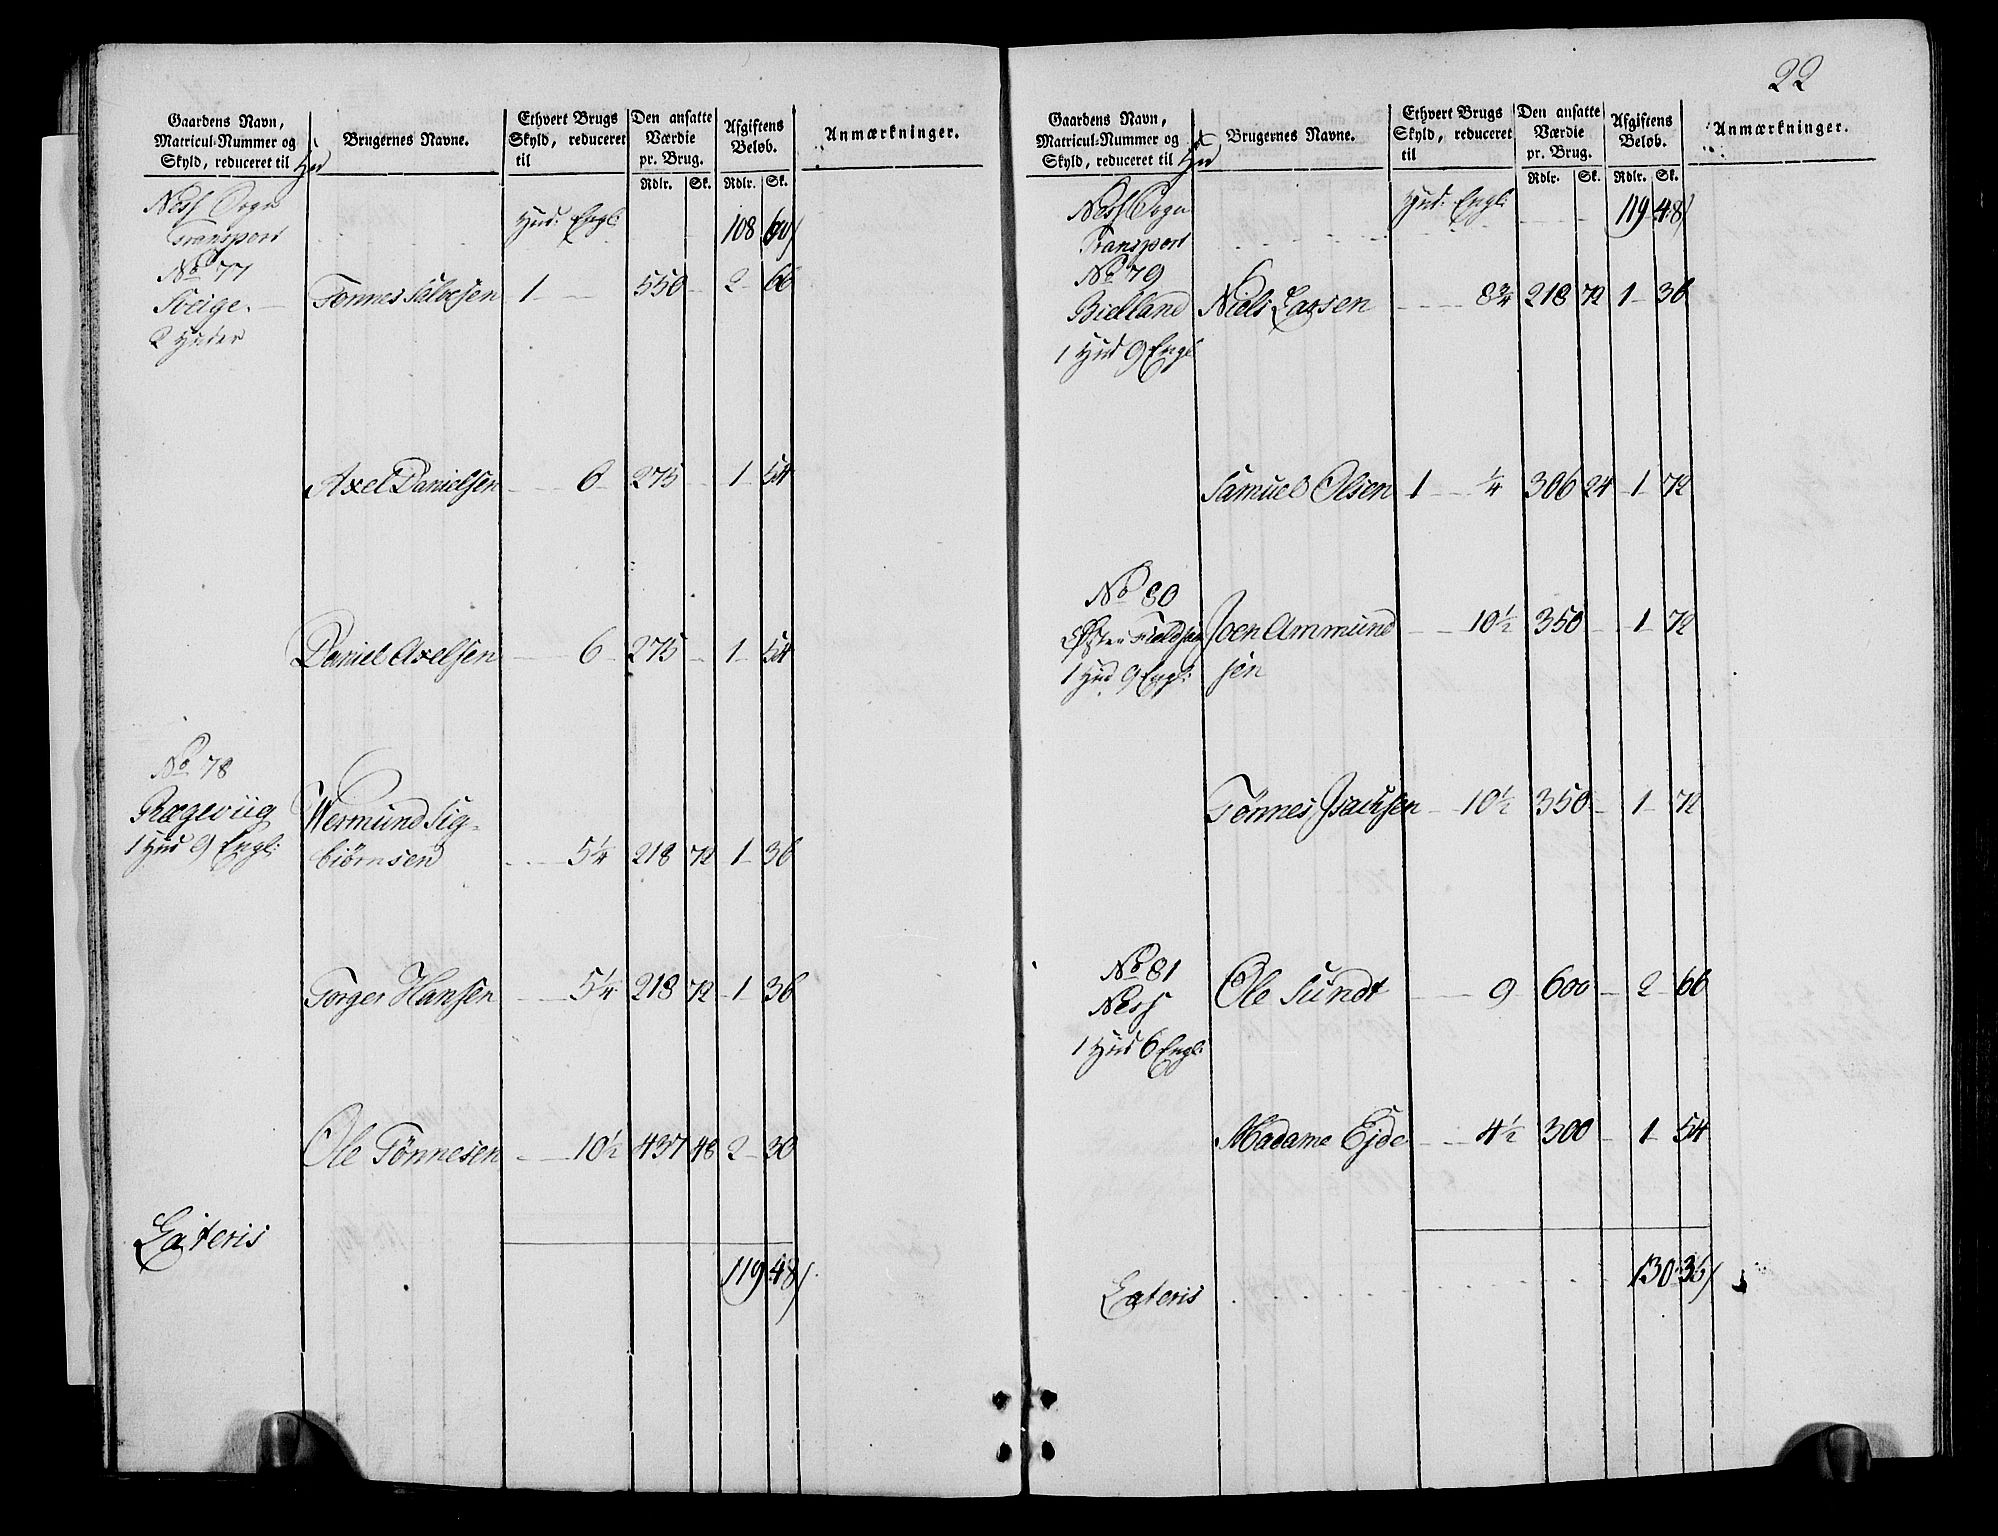 Gaardens Navn, Matricul-Nummer og Skyld, reduceret til Hud
Brugernes Navne.
Ethvert Brugs Skyld, reduceret til
Den ansatte Værdie pr. Brug.
Afgiftens Beløb.
Anmærkninger.
Rdlr. Sk. Rdlr. Sk.
Ness Sogn
Transport Hud: Engl: 108 60/
No 77
Tveige. Tønnes Salvesen 1 550 2 66
2 Huder
Axel Danielsen 6 275 1 54
Daniel Axelsen 6 275 1 54
No 78
Rægeviig Wermund Sig-
1 Hud 9 Engl: biørnsen 5¼ 218 72 1 36
Torger Hansen 5¼ 218 72 1 36
Ole Tønnesen 10½ 437 48 2 30
Lateris 119 48/
22
Gaardens Navn, Matricul-Nummer og Skyld, reduceret til Hud
Brugernes Navne.
Ethvert Brugs Skyld, reduceret til
Den ansatte Værdie pr. Brug.
Afgiftens Beløb.
Anmærkninger.
Rdlr. Sk. Rdlr. Sk.
Ness Sogn Hud: Engl: 119 48/
Transport
No 79
Bielland Niels Larsen 8¾ 218 72 1 36
1 Hud 9 Engl:
Samuel Olsen 1 ¼ 306 24 1 72
No 80
Øster Joen Ammund 10½ 350 1 72
1 Hud 9 Engl: sen
Tønnes Isachsen 10½ 350 1 72
No 81
Ness Ole Sundt 9 600 2 66
1 Hud 6 Engl:
Madame Ejde 4½ 300 1 54
Lateris 130 36/